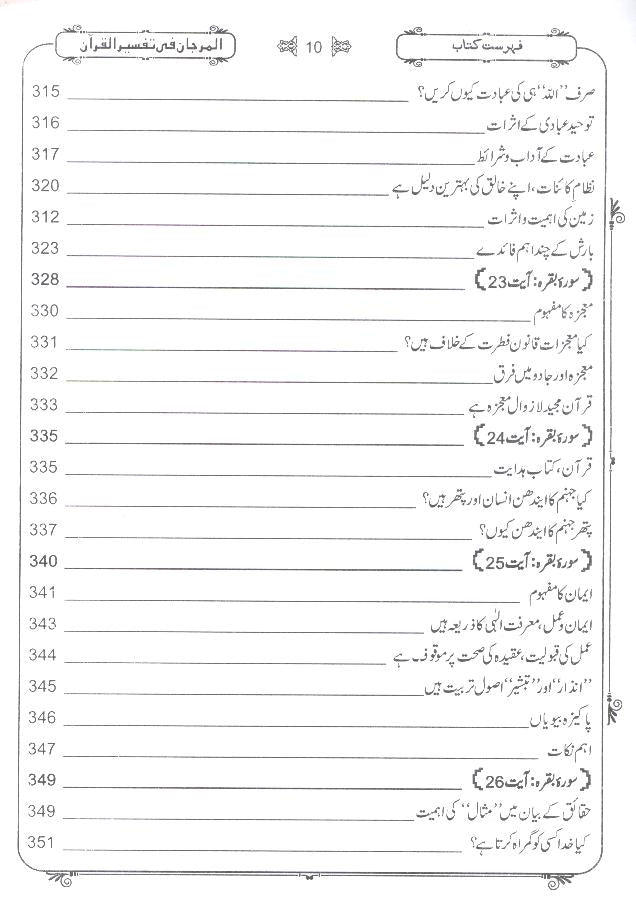 فہرست کتاب 10 المرجان فی تفسیر القرآن
صرف ’’اللہ‘‘ ہی کی عبادت کیوں کریں؟ 315
توحید عبادی کے اثرات 316
عبادت کے آداب و شرائط 317
نظام کائنات، اپنے خالق کی بہترین دلیل ہے 320
زمین کی اہمیت و اثرات 312
بارش کے چند اہم فائدے 323
﴿سورۂ بقرہ: آیت 23﴾ 328
معجزہ کا مفہوم 330
کیا معجزات قانون فطرت کے خلاف ہیں؟ 331
معجزہ اور جادو میں فرق 332
قرآن مجید لازوال معجزہ ہے 333
﴿سورۂ بقرہ: آیت 24﴾ 335
قرآن، کتاب ہدایت 335
کیا جہنم کا ایندھن انسان اور پتھر ہیں؟ 336
پتھر جہنم کا ایندھن کیوں؟ 337
﴿سورۂ بقرہ: آیت 25﴾ 340
ایمان کا مفہوم 341
ایمان و عمل، معرفت الٰہی کا ذریعہ ہیں 343
عمل کی قبولیت، عقیدہ کی صحت پر موقوف ہے 344
’’انذار‘‘ اور ’’تبشیر‘‘ اصول تربیت ہیں 345
پاکیزہ بیویاں 346
اہم نکات 347
﴿سورۂ بقرہ: آیت 26﴾ 349
حقائق کے بیان میں ’’مثال‘‘ کی اہمیت 349
کیا خدا کسی کو گمراہ کرتا ہے؟ 351